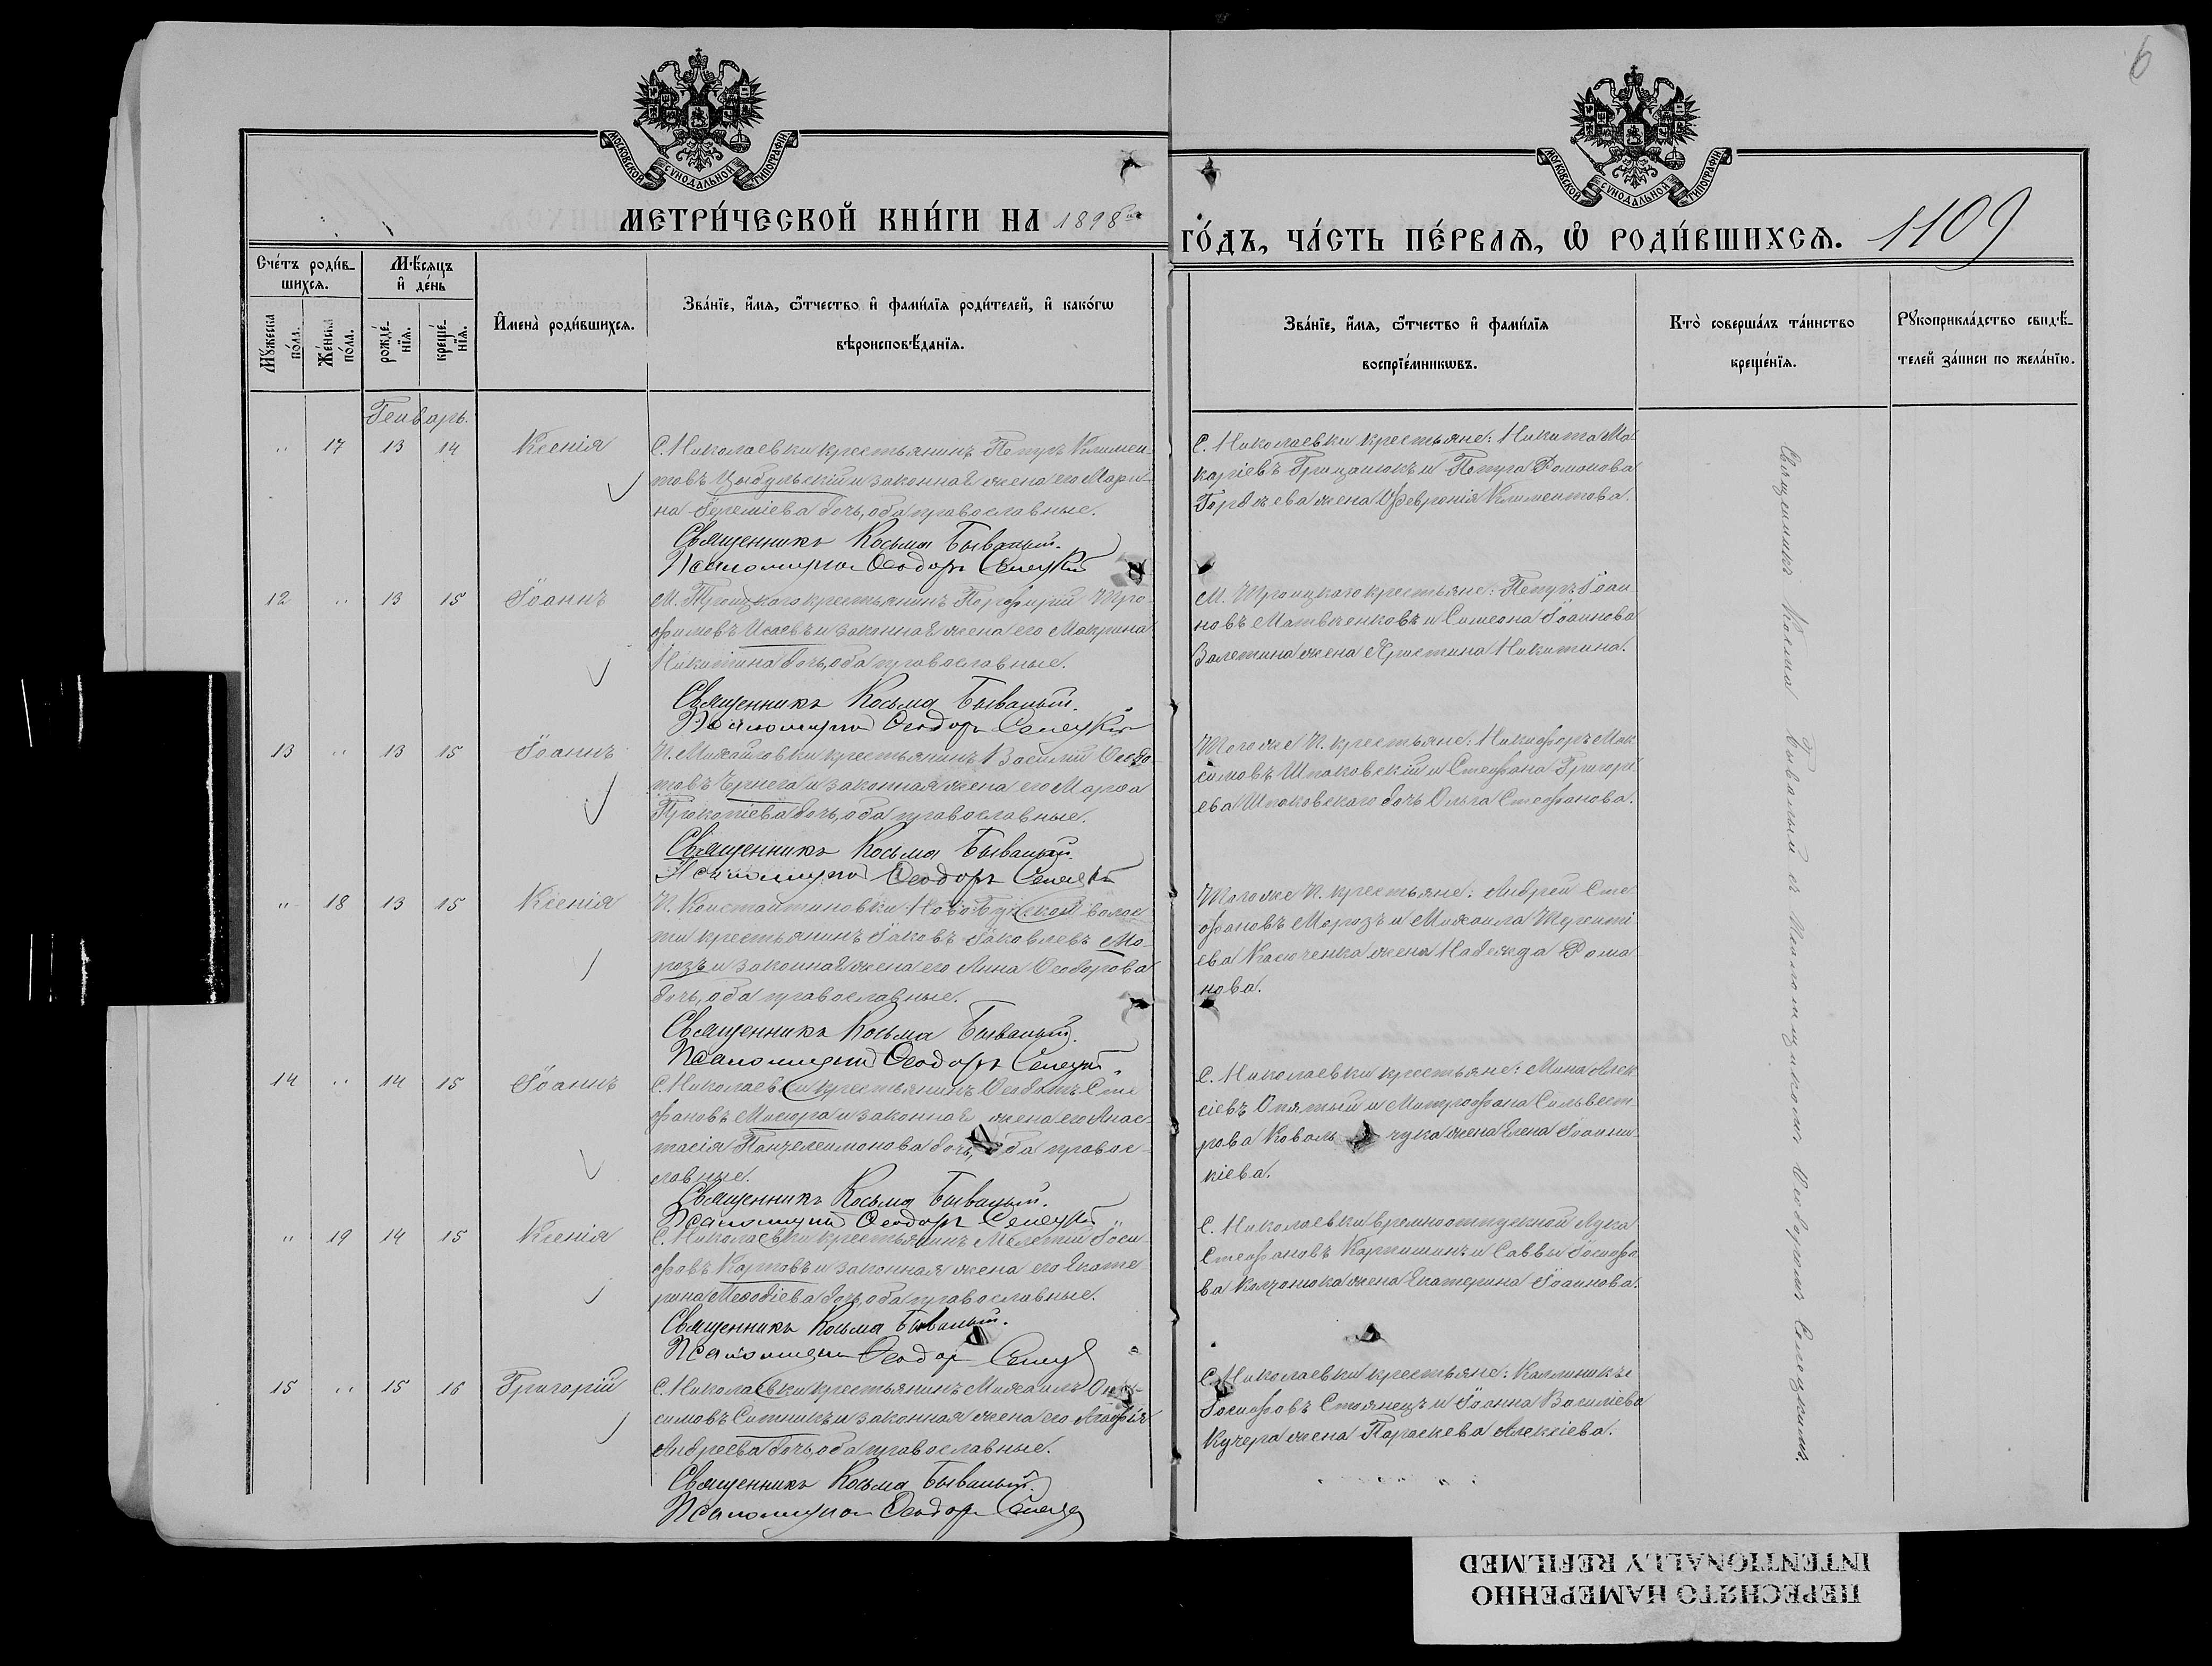 6
МОСКОВСКОЙ СѴНОДАЛЬНОЙ ТИПОГРАФІИ
МОСКОВСКОЙ СѴНОДАЛЬНОЙ ТИПОГРАФІИ
МЕТРИ́ЧЕСКОЙ КНИ́ГИ НА 1898й
ГО́ДЪ, ЧА́СТЬ ПЕ́РВАѦ, Ѡ РОДИ́ВШИХСѦ. 1109
Сче́тъ роди́вшихсѧ.
Мꙋ́жеска по́ла.
Же́нска по́ла.
Мѣ́сѧцъ и҆ де́нь
рожде́нїѧ.
креще́нїѧ.
И҆мена̀ роди́вшихсѧ.
Зва́нїе, и҆́мѧ, ѻ҆́тчество и҆ фами́лїѧ роди́телей, и҆ како́гѡ
вѣроисповѣ́данїѧ.
Зва́нїе, и҆́мѧ, ѻ҆́тчество и҆ фами́лїѧ
воспрїе́мникѡвъ.
Кто̀ соверша́лъ та́инство
креще́нїѧ.
Рꙋкоприкла́дство свидѣ́-
телей за́писи по жела́нїю.
Генварь.
" 17 13 14 Ксенія
С. Николаевки крестьянинъ Петръ Климен-
товъ Цыбульскій и законная жена его Мари-
на Іереміева дочь, оба православные.
Священникъ Косьма Бывалый.
Псаломщикъ Ѳеодоръ Селецкій
С. Николаевки крестьяне: Никита Ма-
каріевъ Грищанюкъ и Петра Романова
жена Февронія Климентова.
12 " 13 15 Іоаннъ
М. Троицкаго крестьянинъ Порфирій Тро-
фимовъ Исаевъ и законная жена его Макрина
Никитина дочь, оба православные.
Священникъ Косьма Бывалый.
Псаломщикъ Ѳеодоръ Селецкій
М. Троицкаго крестьяне: Петръ Іоан-
новъ Матвѣенковъ и Симеона Іоаннова
жена Христина Никитина.
13 " 13 15 Іоаннъ
П. Михайловки крестьянинъ Василій Ѳеодо-
товъ Чернега и законная жена его Марѳа
Прокопіева дочь, оба православные.
Священникъ Косьма Бывалый.
Псаломщикъ Ѳеодоръ Селецкій
Того же П. крестьяне: Никифоръ Мак-
симовъ Шпаковскій и Стефана Григорі-
ева Шпаковскаго дочь Ольга Стефанова.
" 18 13 15 Ксенія
П. Константиновки Ново-Бугской волос-
ти крестьянинъ Іаковъ Іаковлевъ Мо-
розъ и законная жена его Анна Ѳеодорова
дочь, оба православные.
Священникъ Косьма Бывалый.
Псаломщикъ Ѳеодоръ Селецкій
Того же П. крестьяне: Андрей Сте-
фановъ Морозъ и Михаила Теренті-
ева жена Надежда Рома-
нова.
14 " 14 15 Іоаннъ
С. Николаевки крестьянинъ Ѳеодотъ Сте-
фановъ Мисюра и законная жена его Анас-
тасія Пантелеимонова дочь, оба правос-
лавные.
Священникъ Косьма Бывалый.
Псаломщикъ Ѳеодоръ Селецкій
С. Николаевки крестьяне: Мина Алек-
сіевъ Опятый и Митрофана Сильвест-
рова Коваль чука жена Елена Іоанни-
кіева.
" 19 14 15 Ксенія
С. Николаевки крестьянинъ Мелетій Іоси-
фовъ Карповъ и законная жена его Екате-
рина Меѳодіева дочь, оба православные.
Священникъ Косьма Бывалый.
Псаломщикъ Ѳеодоръ Селец
С. Николаевки времноотпускной Лука
Стефановъ Карпишинъ и Саввы Іосифо-
ва жена Екатерина Іоаннова.
15 " 15 16 Григорій
С. Николаевки крестьянинъ Михаилъ Они-
симовъ Ситникъ и законная жена его Агафія
Андреева дочь, оба православные.
Священникъ Косьма Бывалый.
Псаломщикъ Ѳеодоръ Селец
С. Николаевки крестьяне: Каллиникъ
Іосифовъ Стоянецъ и Іоанна Василіева
Кучера жена Параскева Алексіева.
Священникъ Косма Бывалый съ Псаломщикомъ Ѳеодоромъ Селецкимъ.
ПЕРЕСНЯТО НАМЕРЕННО
INTENTIONALLY REFILMED